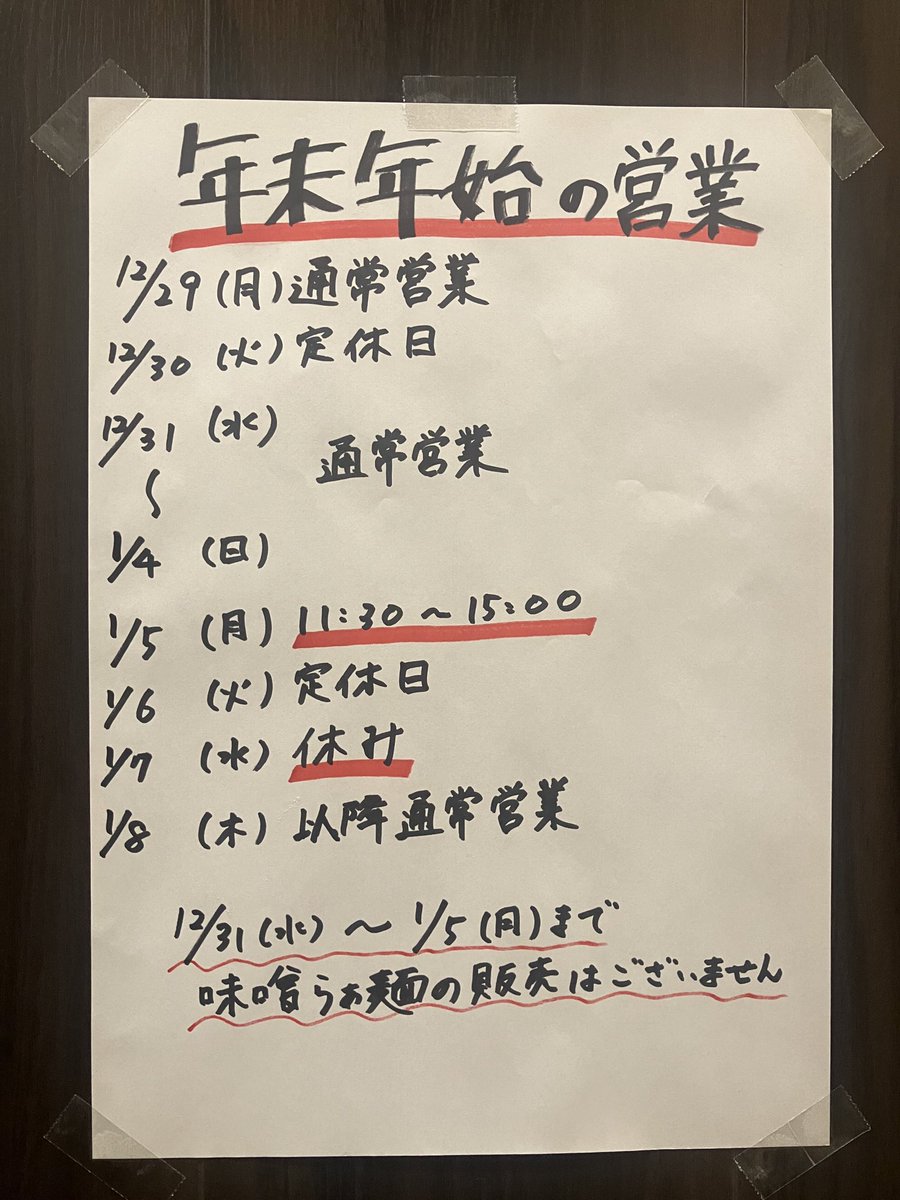 年末年始の営業
12/29(月)通常営業
12/30(火)定休日
12/31(水)
通常営業
〜
1/4(日)
1/5(月)11:30〜15:00
1/6(火)定休日
1/7(水)休み
1/8(木)以降通常営業
12/31(水)〜1/5(月)まで
味噌らぁ麺の販売はございません